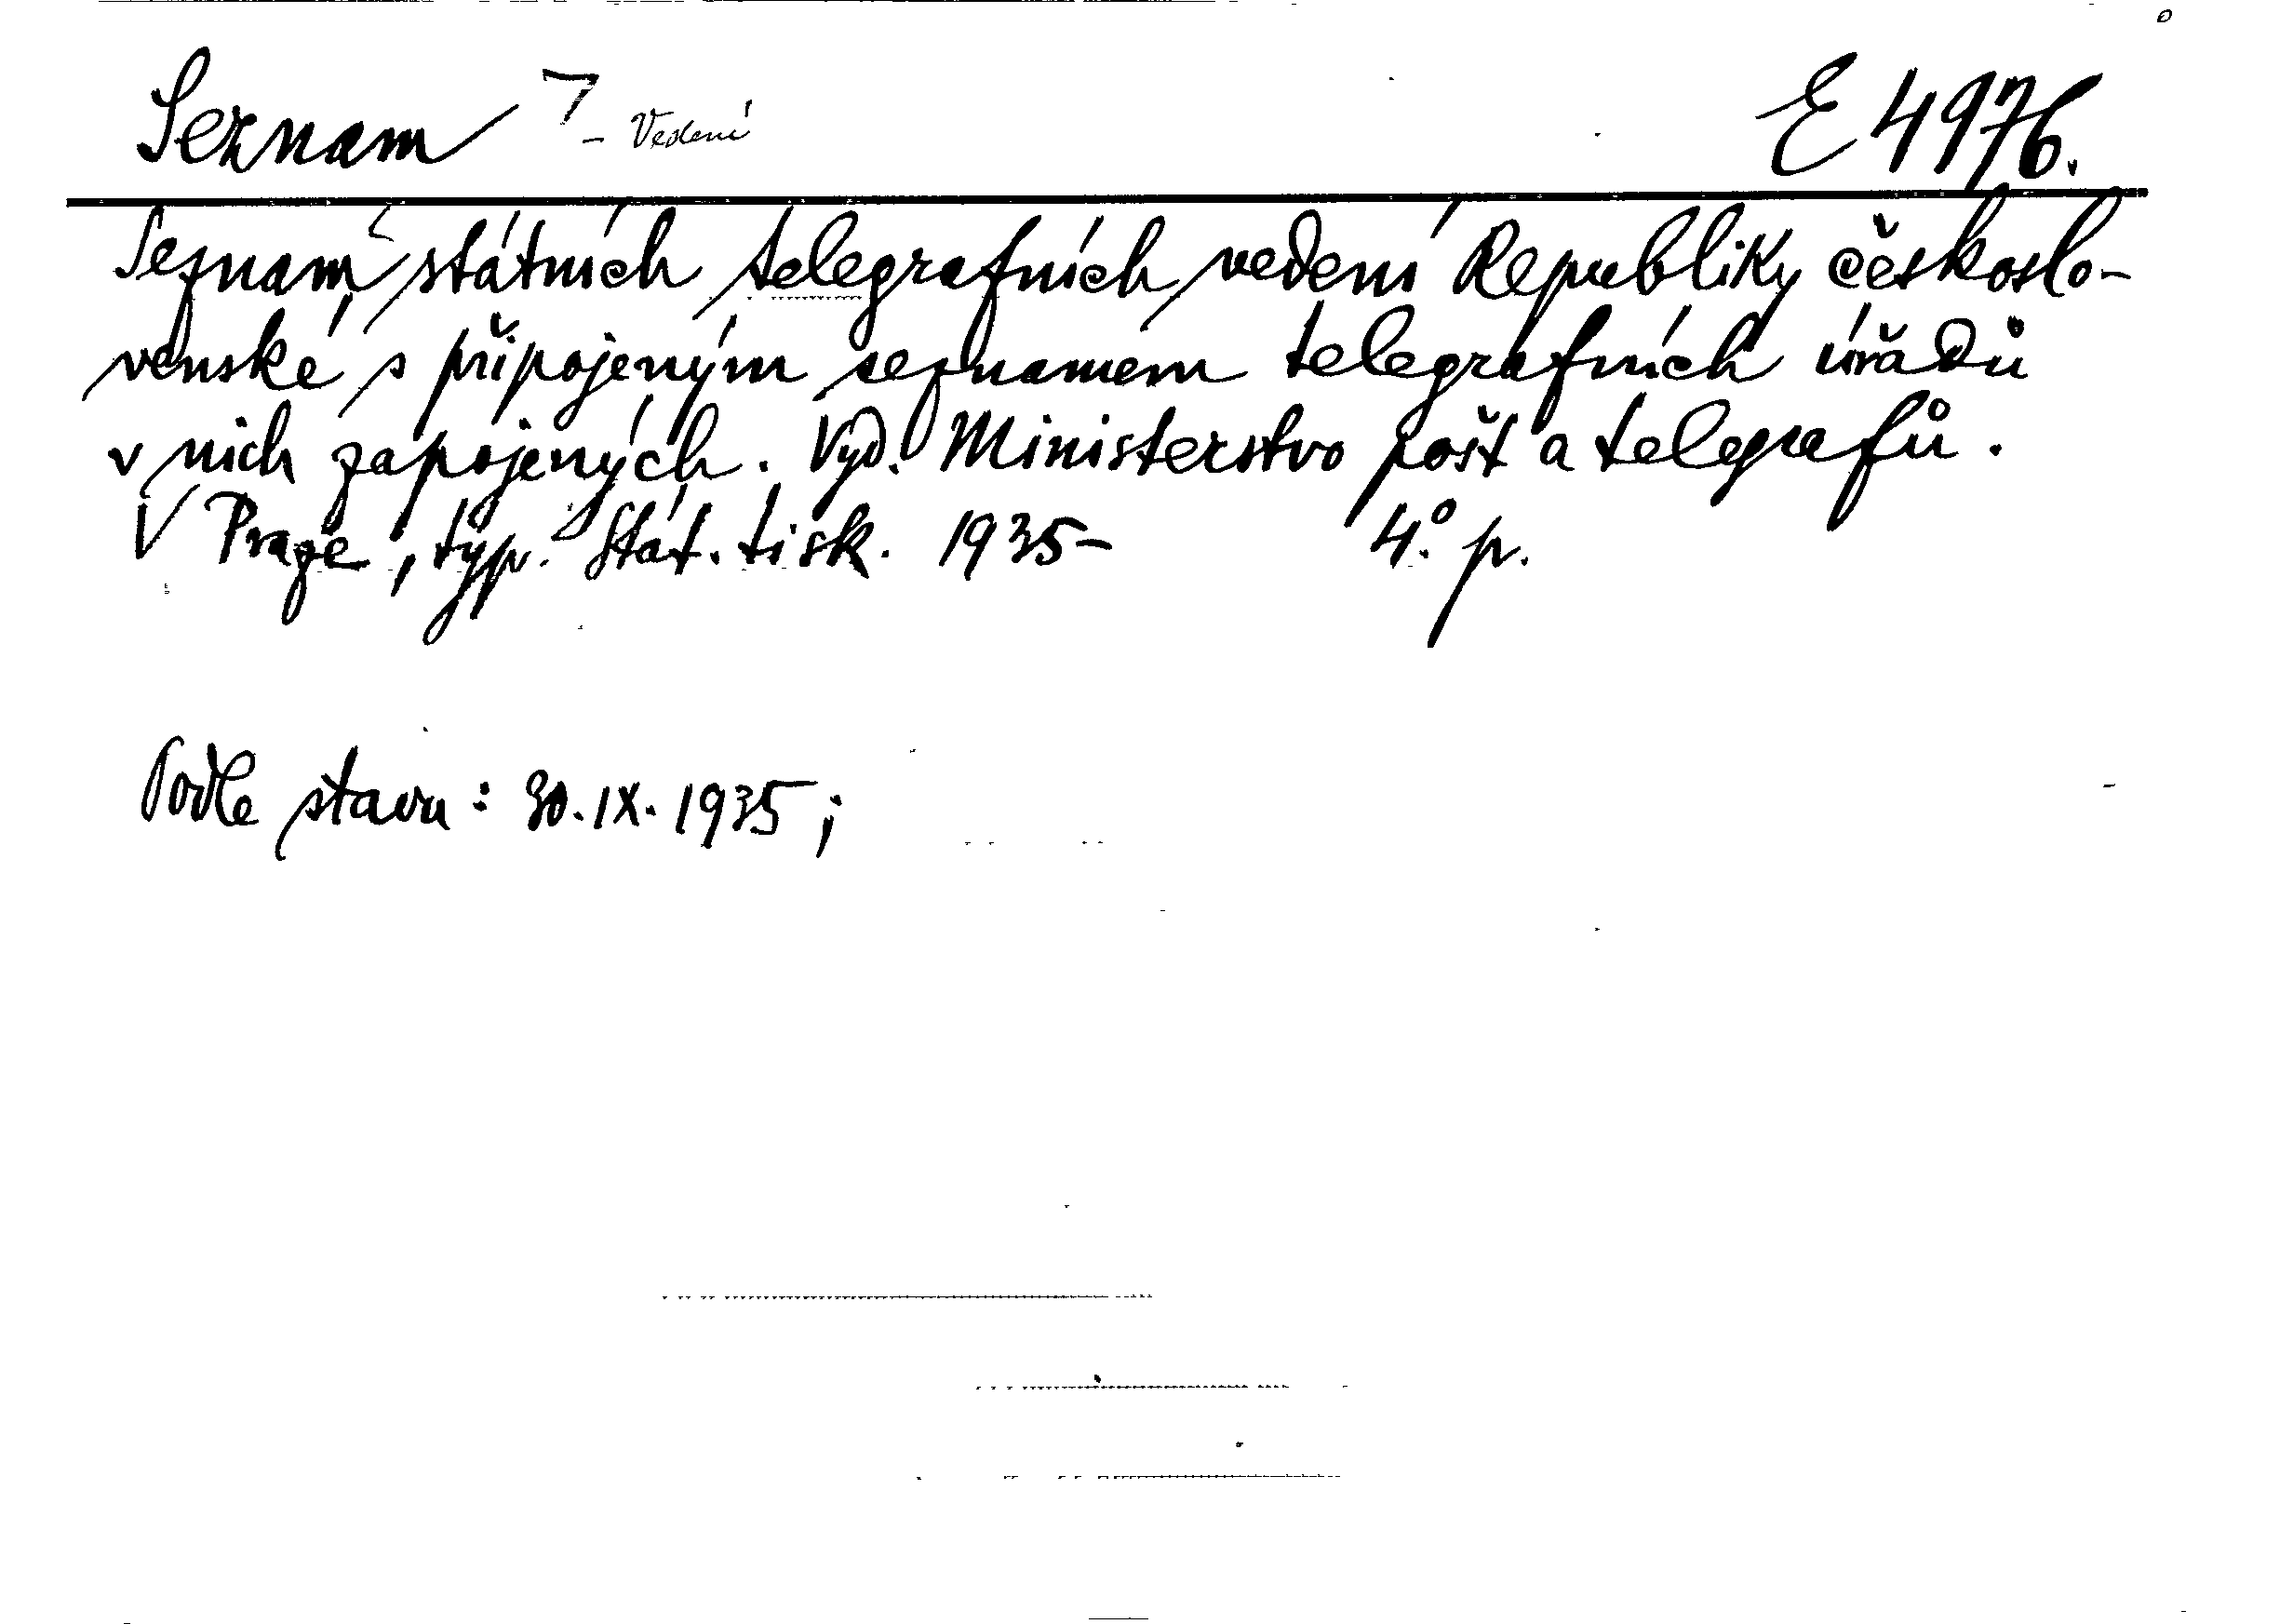 Seznam - Vedení E 4976.
Seznam státních telegrafních vedení Republiky českoslo-
venské s připojeným seznamem telegrafních úřadů
v nich zapojených. Vyd. Ministerstvo pošt a telegrafů.
V Praze, typ. Stát. tisk. 1935- 4.° p.
Podle stavu: 30.IX.1935;